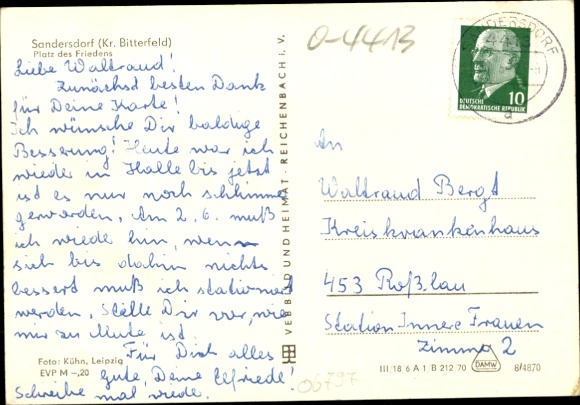 Sandersdorf (Kr. Bitterfeld)
Platz des Friedens
Liebe Waltraud!
Zunächst besten Dank
für Deine Karte!
Ich wünsche Dir baldige
Besserung! Heute war ich
wieder in Halle bis jetzt
ist es nur noch schlimmer
geworden. Am 2.6. muß
ich wiede hin, wenn
sich bis dahin nichts
bessert muß ich stationär
werden. Stelle Dir vor, wie
mir zu Mute ist.
Für Dich alles
gute, Deine Elfriede!
Schreibe mal wiede.
Foto: Kühn, Leipzig
EVP M –,20
VEB BILD UND HEIMAT · REICHENBACH i. V.
O-4413
SANDERSDORF
4413
DEUTSCHE
DEMOKRATISCHE REPUBLIK
10
a
An
Waltraud Bergt
Kreiskrankenhaus
453 Roßlau
Station Innere Frauen
Zimmer 2
III 18 6 A 1 B 212 70
DAMW
8/4870
06797